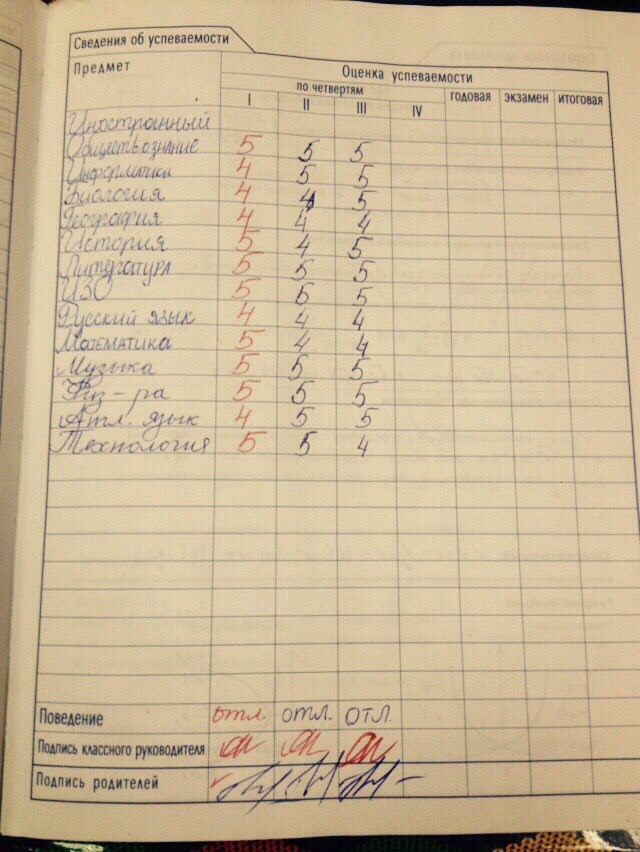 Сведения об успеваемости
Предмет Оценка успеваемости
по четвертям годовая экзамен итоговая
I II III IV
Иностранный
Обществознание 5 5 5
Информатика 4 5 5
Биология 4 4 5
География 4 4 4
История 5 4 5
Литература 5 5 5
ИЗО 5 5 5
Русский язык 4 4 4
Математика 5 4 4
Музыка 5 5 5
Физ-ра 5 5 5
Англ. язык 4 5 5
Технология 5 5 4
Поведение отл отл. отл.
Подпись классного руководителя
Подпись родителей